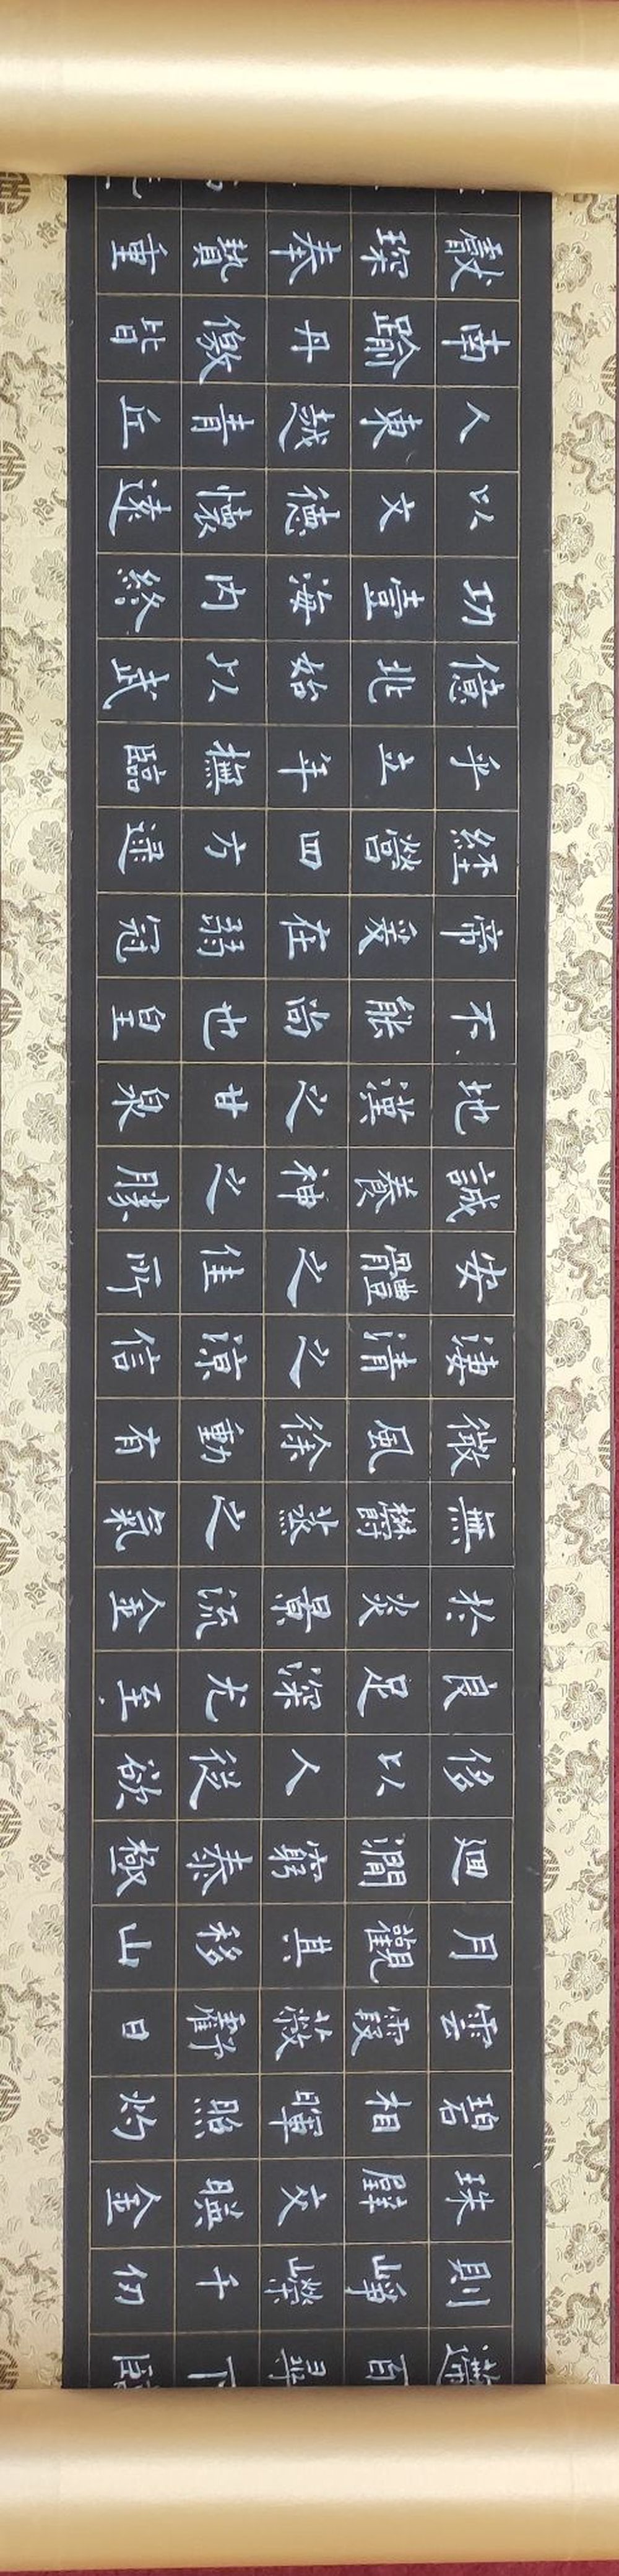 則崢嶸千仞
珠壁交暎金
碧相暉照灼
雲霞蔽虧日
月觀其移山
迴澗窮泰極
侈以人從欲
良足深尤至
於炎景流金
無鬱蒸之氣
微風徐動有
淒清之涼信
安體之佳所
誠養神之勝
地漢之甘泉
不能尚也皇
帝爰在弱冠
經營四方逮
乎立年撫臨
億兆始以武
功壹海內終
以文德懷遠
人東越青丘
南踰丹徼皆
獻琛奉贄重